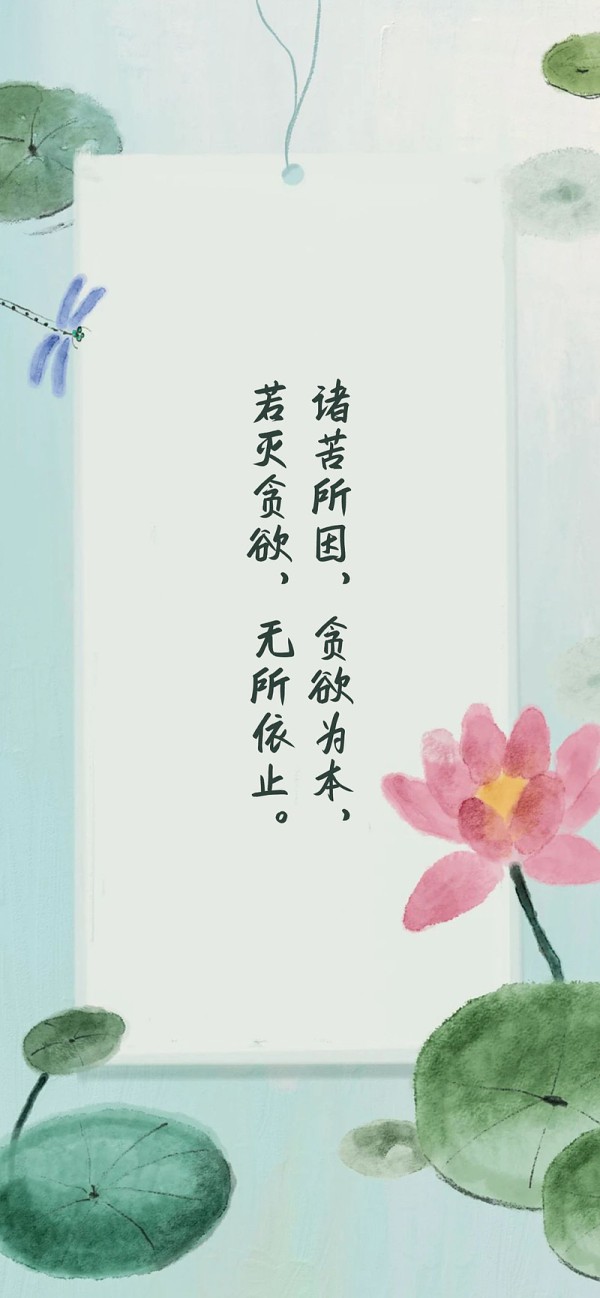 诸苦所因，贪欲为本，
若灭贪欲，无所依止。